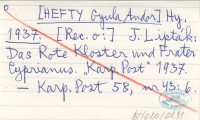 [HEFTY Gyula Andor] Hy.
1937. [Rec. o:] J. Lipták:
Das Rote Kloster und Frater
Cyprianus. "Karp. Post" 1937.
— Karp. Post 58, nr 43: 6.